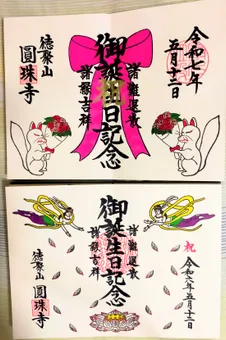 令和七年
五月十二日
諸難退散
御誕生日記念
諸縁吉祥
徳聚山
圓珠寺
祝
令和六年五月十二日
諸難退散
御誕生日記念
諸縁吉祥
徳聚山
圓珠寺